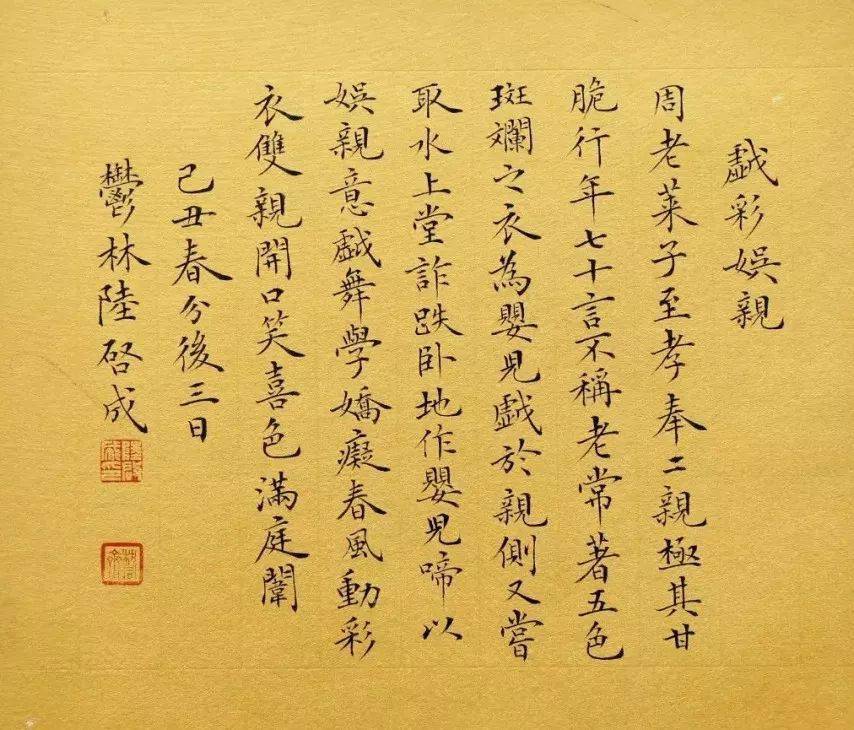 戯彩娯親
周老莱子至孝奉二親極其甘
脆行年七十言不稱老常著五色
斑斕之衣為嬰児戯於親側又嘗
取水上堂詐跌卧地作嬰児啼以
娯親意戯舞學嬌癡春風動彩
衣雙親開口笑喜色滿庭闈
己丑春分後三日
鬱林陸啓成